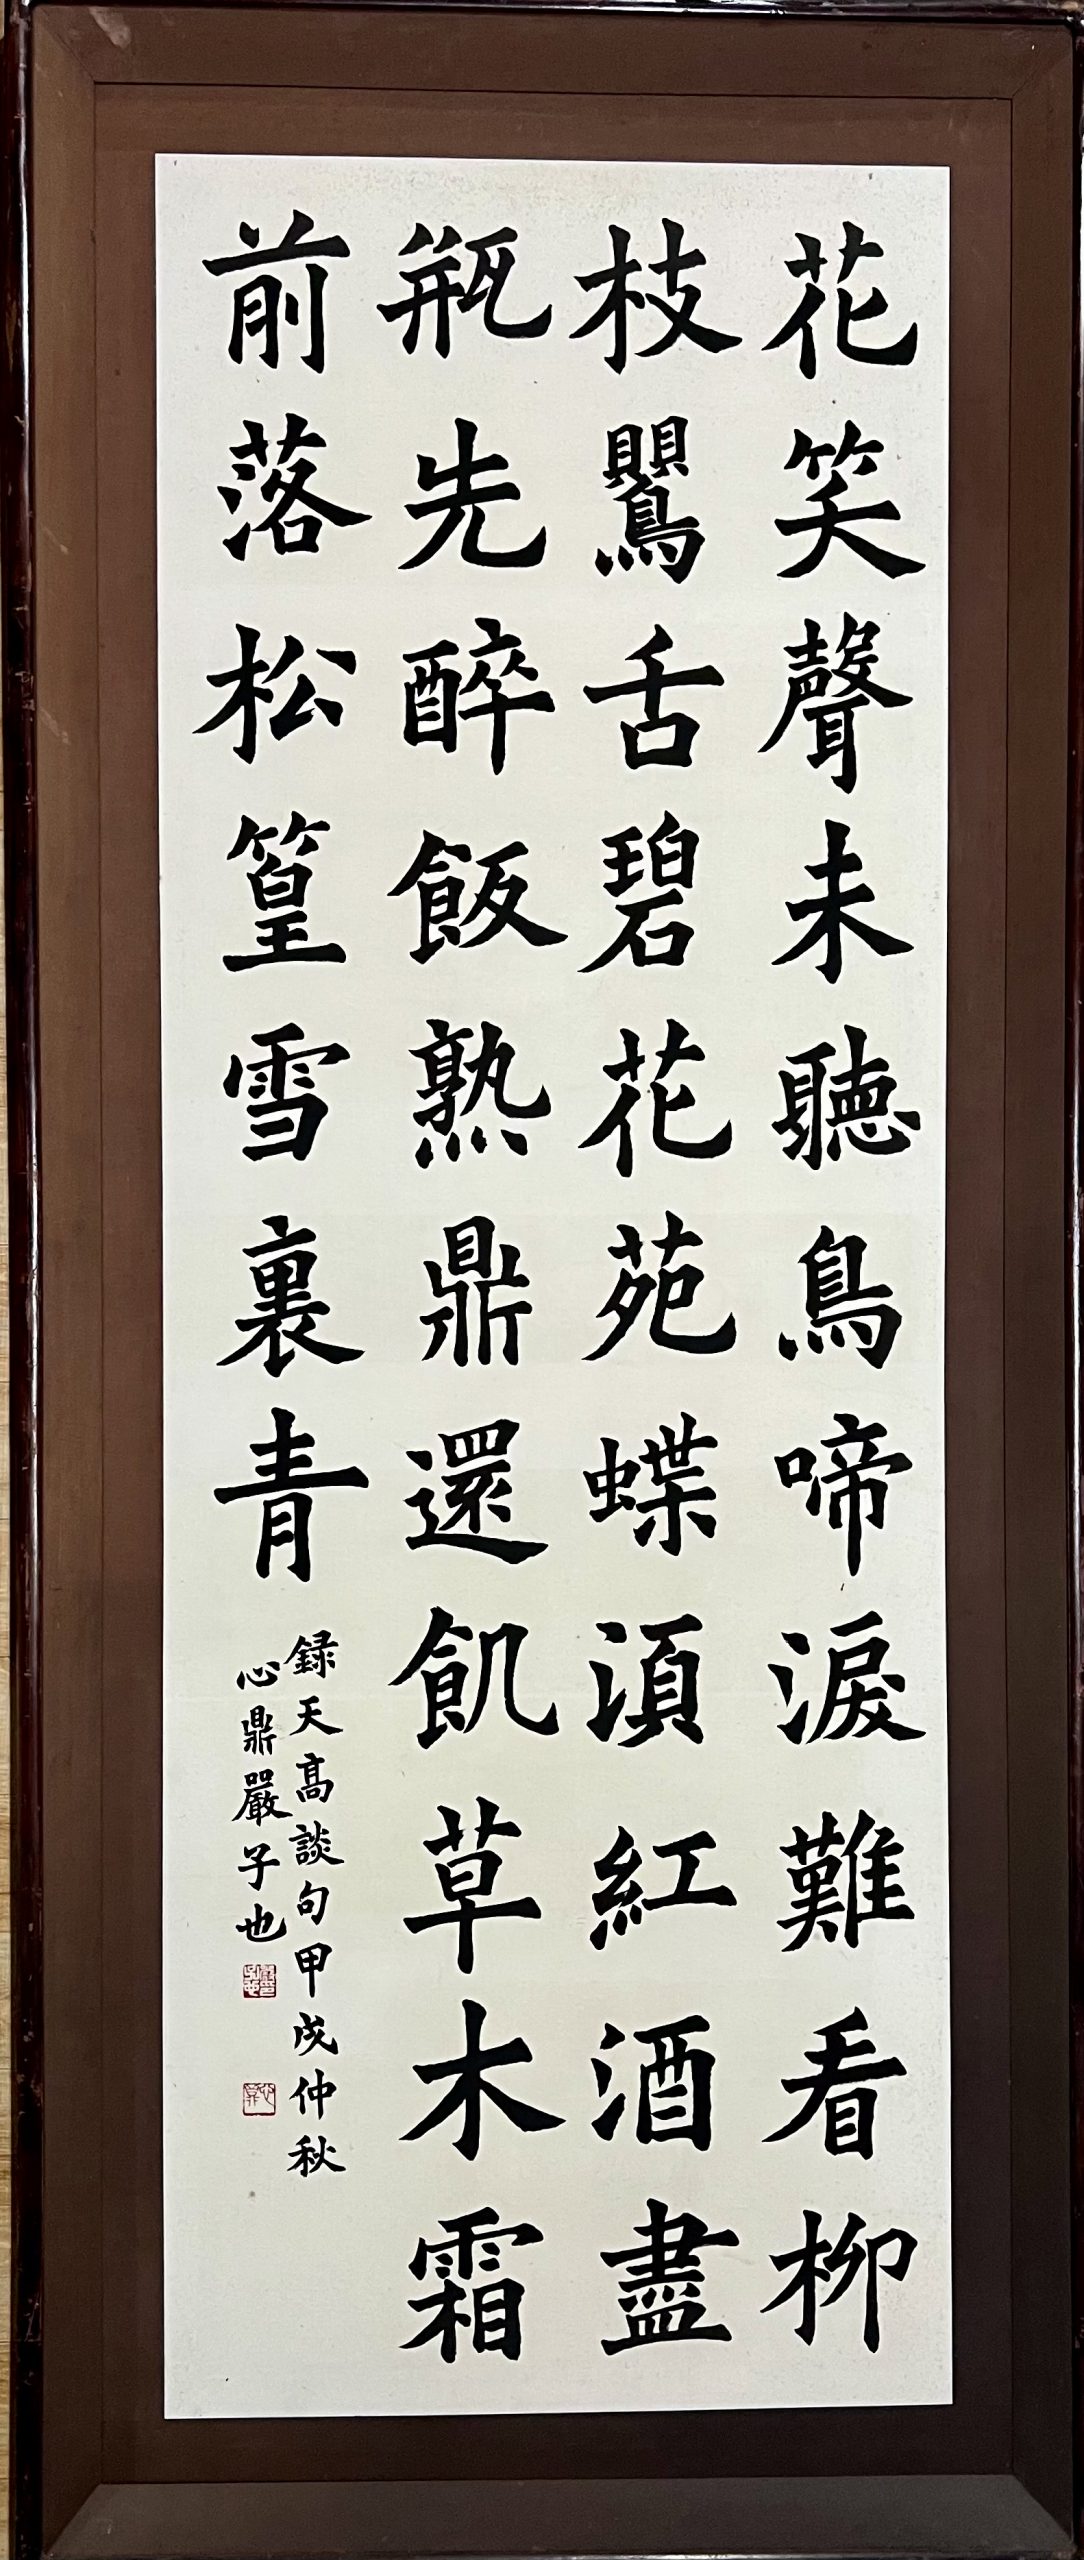 花笑聲未聽鳥啼淚難看柳
枝鸎舌碧花苑蝶須紅酒盡
瓶先醉飯熟鼎還飢草木霜
前落松篁雪裏青
録天高談句甲戌仲秋
心鼎嚴子也